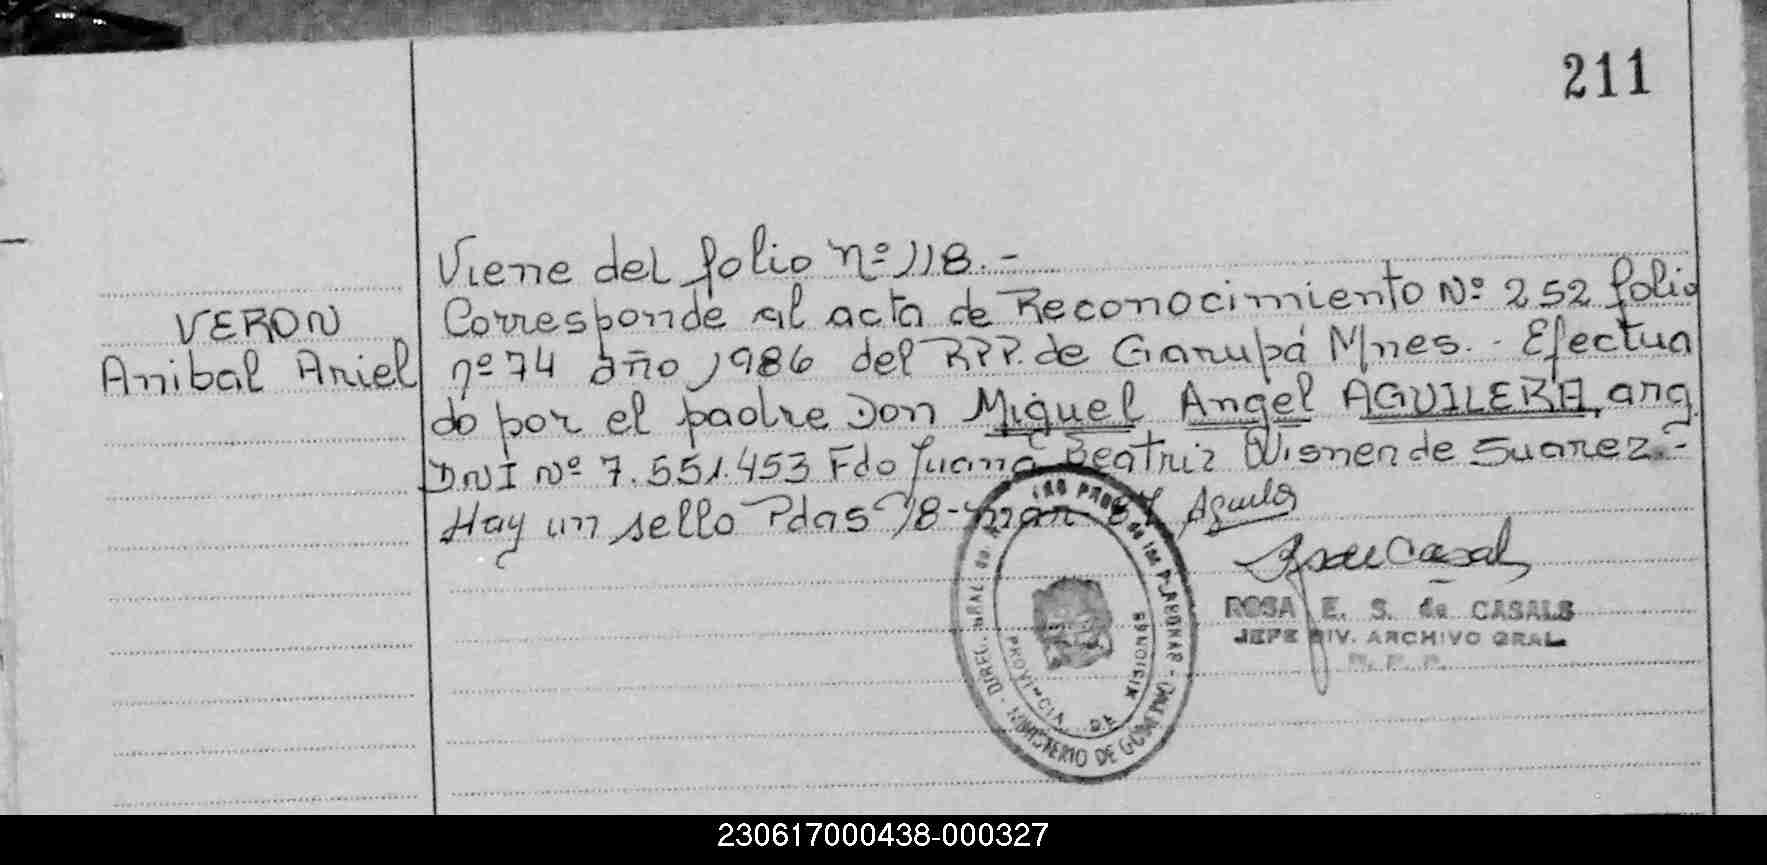 211
Viene del folio nº 118.-
VERON
Anibal Ariel
Corresponde al acta de Reconocimiento Nº 252 folio
nº 74 año 1986 del RPP. de Garupá Mnes. - Efectua
do por el padre Don Miguel Angel AGUILERA, arg
DNI Nº 7.551.453 Fdo Juana Beatriz Wisner de Suarez.-
Hay un sello Pdas 18-mar-87 Aguila
ROSA E. S. de CASALS
JEFE DIV. ARCHIVO GRAL
R. P. P.
PROVINCIA DE MISIONES
MINISTERIO DE
230617000438-000327